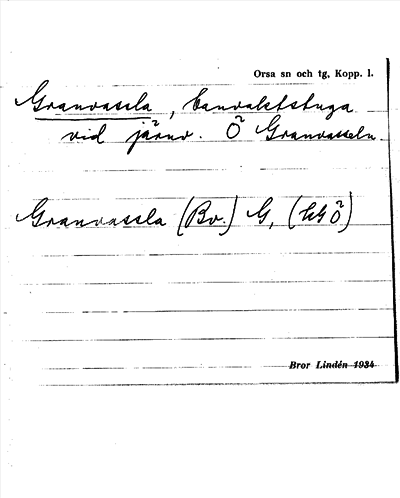 Orsa sn och tg, Kopp. l.
Granvassla, banvaktstuga
vid järnv. Ö Granvasseln.
Granvassla (Bv.) G, (hö)
Bror Lindén 1934